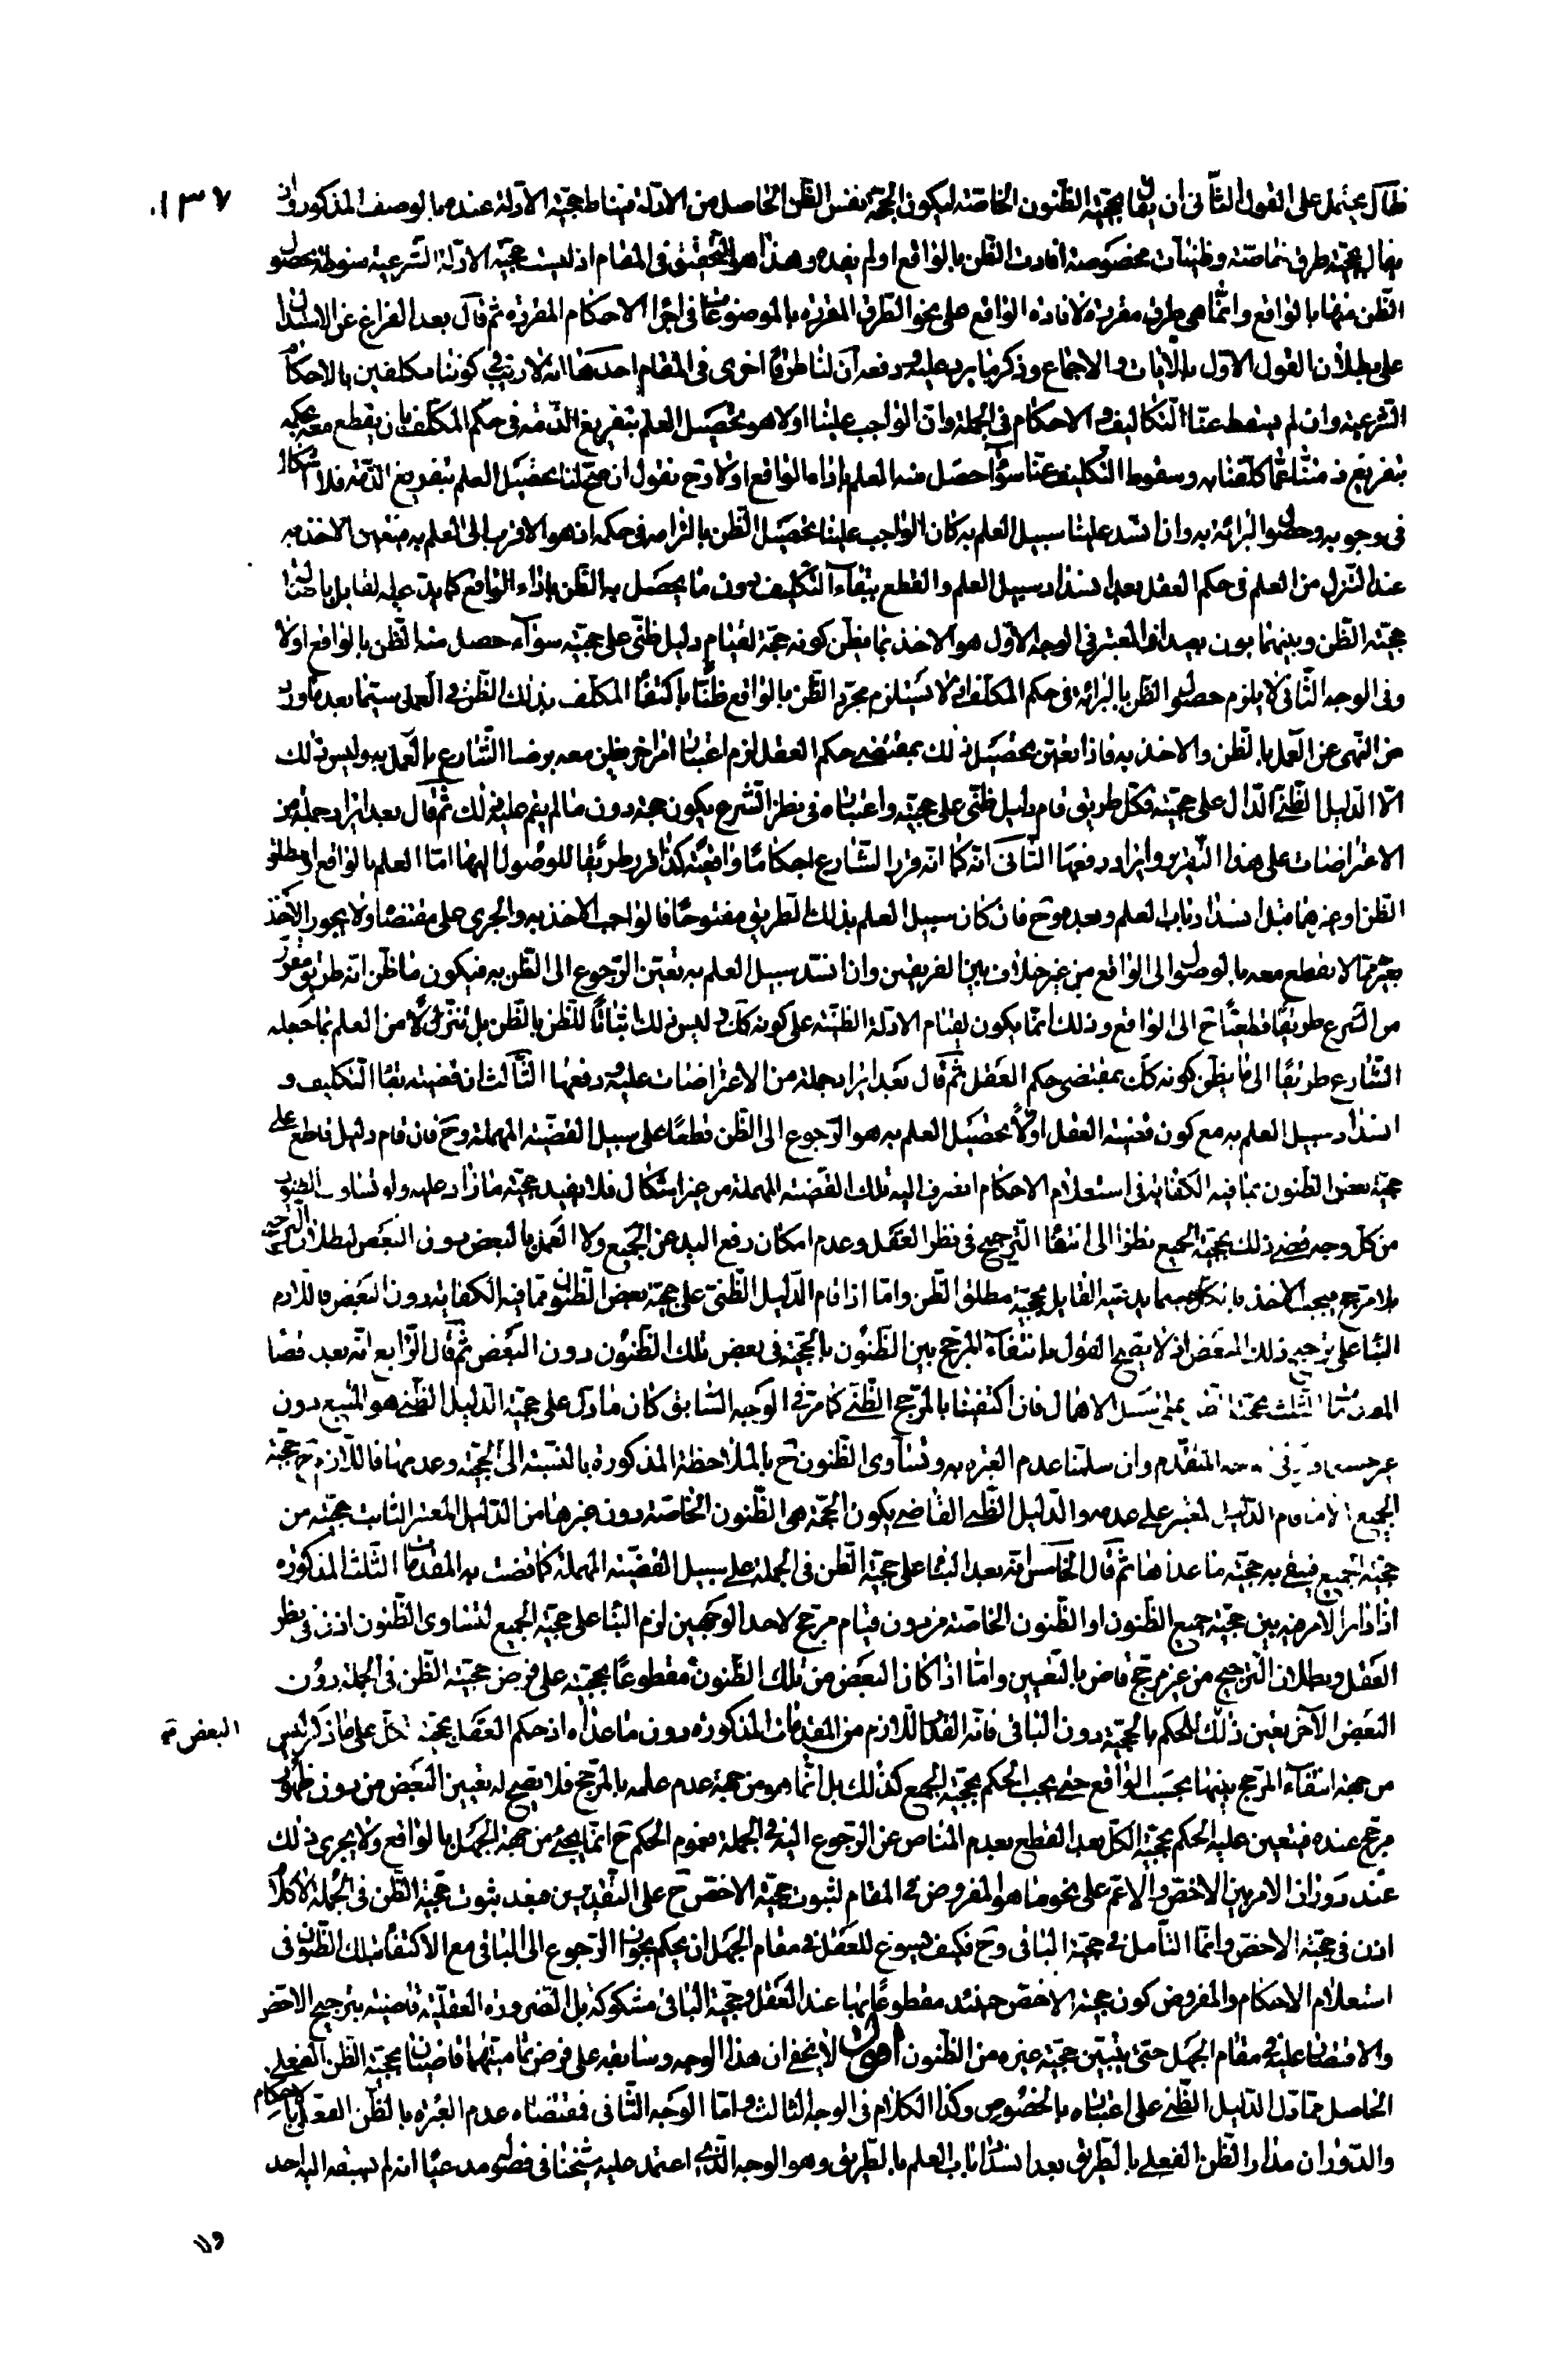 ١٣٧
ثم قال يحتمل على القول الثاني ان يقال بحجية الظنون الخاصة ليكون الحجة نفس الظن الحاصل من الادلة فيناط حجية الادلة عنده بالوصف المذكور وان
يقال بحجية طرق خاصة وظنيات مخصوصة افادت الظن بالواقع او لم يفده وهذا هو التحقيق في المقام اذ ليست حجية الادلة الشرعية منوطة بحصول
الظن منها بالواقع وانما هي طرق مقررة لافادة الواقع على نحو الطرق المقررة بالموضوعات في اجراء الاحكام المقررة ثم قال بعد الفراغ عن الاستدلال
على بطلان القول الاول بالايات والاجماع وذكر ما يرد عليه ودفعه ان لنا طرقا اخرى في المقام احدها انه لا ريب في كوننا مكلفين بالاحكام
الشرعية وان لم يسقط عنا التكاليف والاحكام في الجملة وان الواجب علينا اولا هو تحصيل العلم بتفريغ الذمة في حكم المكلف بان يقطع معه بحكمه
بتفريغ ذمتنا عما كلفنا به وسقوط التكليف عنا سواء حصل منه العلم باداء الواقع اولا وح نقول ان صح لنا تحصيل العلم بتفريغ الذمة فلا اشكال
في وجوبه وحصول البرائة به وان انسد علينا سبيل العلم به كان الواجب علينا تحصيل الظن بالبرائة في حكمه اذ هو الاقرب الى العلم به فتعين الاخذ به
عند التنزل من العلم في حكم العقل بعد انسداد سبيل العلم والقطع ببقاء التكليف دون ما يحصل به الظن باداء الواقع كما يدعيه القائل باصالة
حجية الظن وبينهما بون بعيد اذ المعتبر في الوجه الاول هو الاخذ بما يظن كونه حجة لقيام دليل ظني على حجيته سواء حصل منه الظن بالواقع اولا
وفي الوجه الثاني لا يلزم حصول الظن بالبرائة في حكم المكلف اذ لا يستلزم مجرد الظن بالواقع ظنا باكتفاء المكلف بذلك الظن في العمل سيما بعد ما ورد
من النهى عن العمل بالظن والاخذ به فاذا تعين تحصيل ذلك بمقتضى حكم العقل لزم اعتبار امر اخر يظن معه برضا الشارع بالعمل به وليس ذلك
الا الدليل الظني الدال على حجيته فكل طريق قام دليل ظني على حجيته واعتباره في نظر الشرع يكون حجة دون ما لم يقم عليه ذلك ثم قال بعد ايراد جملة من
الاعتراضات على هذا التقرير وايراد دفعها الثاني انه كما انه قرر الشارع احكاما واقعية كذا قرر طريقا للوصول اليها اما العلم بالواقع او مطلق
الظن او غيرهما قبل انسداد باب العلم وبعده وح فان كان سبيل العلم بذلك الطريق مفتوحا فالواجب الاخذ به والجري على مقتضاه ولا يجوز الاخذ
بغيره مما لا يقطع معه بالوصول الى الواقع من غير خلاف بين الفريقين وان انسد سبيل العلم به تعين الرجوع الى الظن به فيكون ما ظن انه طريق مقرر
من الشرع طريقا قطعيا ح الى الواقع وذلك انما يكون لقيام الادلة الظنية على كونه كك وليس ذلك اثباتا للظن بالظن بل تنزلا من العلم بما جعله
الشارع طريقا الى ما يظن كونه كك بمقتضى حكم العقل ثم قال بعد ايراد جملة من الاعتراضات عليه ودفعها الثالث ان قضية بقاء التكليف و
انسداد سبيل العلم به مع كون قضية العقل اولا تحصيل العلم به هو الرجوع الى الظن قطعا على سبيل القضية المهملة وح فان قام دليل قاطع على
حجية بعض الظنون بما فيه الكفاية في استعلام الاحكام انصرف اليه تلك القضية المهملة من غير اشكال فلا يفيد حجية ما زاد عليه ولو تساوت الظنون
من كل وجه قضى ذلك بحجية الجميع نظرا الى انتفاء الترجيح في نظر العقل وعدم امكان رفع اليد عن الجميع ولا العمل بالبعض دون البعض لبطلان الترجيح
بلا مرجح فيجب الاخذ بالكل حسبما يدعيه القائل بحجية مطلق الظن واما اذا قام الدليل الظني على حجية بعض الظنون مما فيه الكفاية دون البعض فاللازم
البناء على ترجيح ذلك البعض اذ لا يصح القول بانتفاء المرجح بين الظنون بالحجية في بعض تلك الظنون دون البعض ثم قال الرابع انه بعد قضاء
المقدمات الثلث بحجية الظن على سبيل الاهمال فان اكتفينا بالمرجح الظني كما مر في الوجه السابق كان ما دل على حجية الدليل الظني هو المتبع دون
غيره المتقدم وان سلمنا عدم العبرة به وتساوى الظنون ح بالملاحظة المذكورة بالنسبة الى الحجية وعدمها فاللازم ح حجية
الجميع الا ما قام الدليل المعتبر على عدمه والدليل الظني القاضي بكون الحجة هي الظنون الخاصة دون غيرها من الدليل المعتبر الثابت حجيته من
حجية الجميع فينفى به حجية ما عداها ثم قال الخامس انه بعد البناء على حجية الظن في الجملة على سبيل القضية المهملة كما قضت به المقدمات الثلث المذكورة
اذا دار الامر فيه بين حجية جميع الظنون او الظنون الخاصة من دون قيام مرجح لاحد الوجهين لزم البناء على حجية الجميع لتساوى الظنون اذن في نظر
العقل وبطلان الترجيح من غير مرجح قاض بالتعيين واما اذا كان البعض من تلك الظنون مقطوعا بحجيته على فرض حجية الظن في الجملة دون
البعض الآخر تعين ذلك للحكم بالحجية دون الباقي فانه القدر اللازم من المقدمات المذكورة دون ما عداه اذ حكم العقل بحجية الكل على ما ذكر ليس
البعض
من جهة انتفاء المرجح بينها بحسب الواقع حتى يجب الحكم بحجية الجميع كذلك بل انما هو من جهة عدم علمه بالمرجح فلا يصح له تعيين البعض من دون ظهور
مرجح عنده فيتعين عليه الحكم بحجية الكل بعد القطع بعدم المناص عن الرجوع اليه في الجملة فعموم الحكم ح انما يجئ من جهة الجهل بالواقع ولا يجرى ذلك
عند دوران الامر بين الاخص والاعم على نحو ما هو المفروض في المقام لثبوت حجية الاخص ح على التقديرين فبعد ثبوت حجية الظن في الجملة لا كلام
اذن في حجية الاخص وانما التأمل في حجية الباقي وح فكيف يسوغ للعقل في مقام الجهل ان يحكم بجواز الرجوع الى الباقي مع الاكتفاء بتلك الظنون في
استعلام الاحكام والمفروض كون حجية الاخص حينئذ مقطوعا بها عند العقل وحجية الباقي مشكوكة بل الضرورة العقلية قاضية بترجيح الاخص
والاقتصار عليه في مقام الجهل حتى يتبين حجية غيره من الظنون اقول لا يخفى ان هذا الوجه وسابقه على فرض تماميتهما قاضيان بحجية الظن الفعلي
الحاصل مما دل الدليل الظني على اعتباره بالخصوص وكذا الكلام في الوجه الثالث واما الوجه الثاني فمقتضاه عدم العبرة بالظن الفعلي بالاحكام
والدوران مدار الظن الفعلي بالطريق بعد انسداد باب العلم بالطريق وهو الوجه الذي اعتمد عليه شيخنا في فصوله مدعيا انه لم يسبقه اليه احد